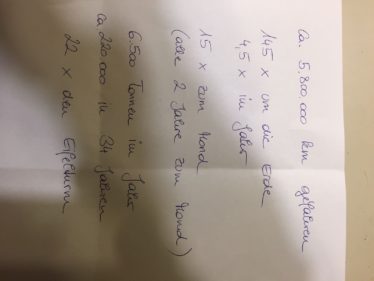 ca. 5.800 000 km gefahren
145 x um die Erde
4,5 x im Jahr
15 x zum Mond
(alle 2 Jahre zum Mond)
6.500 Tonnen im Jahr
ca 220 000 in 34 Jahren
22 x den Eifelturm